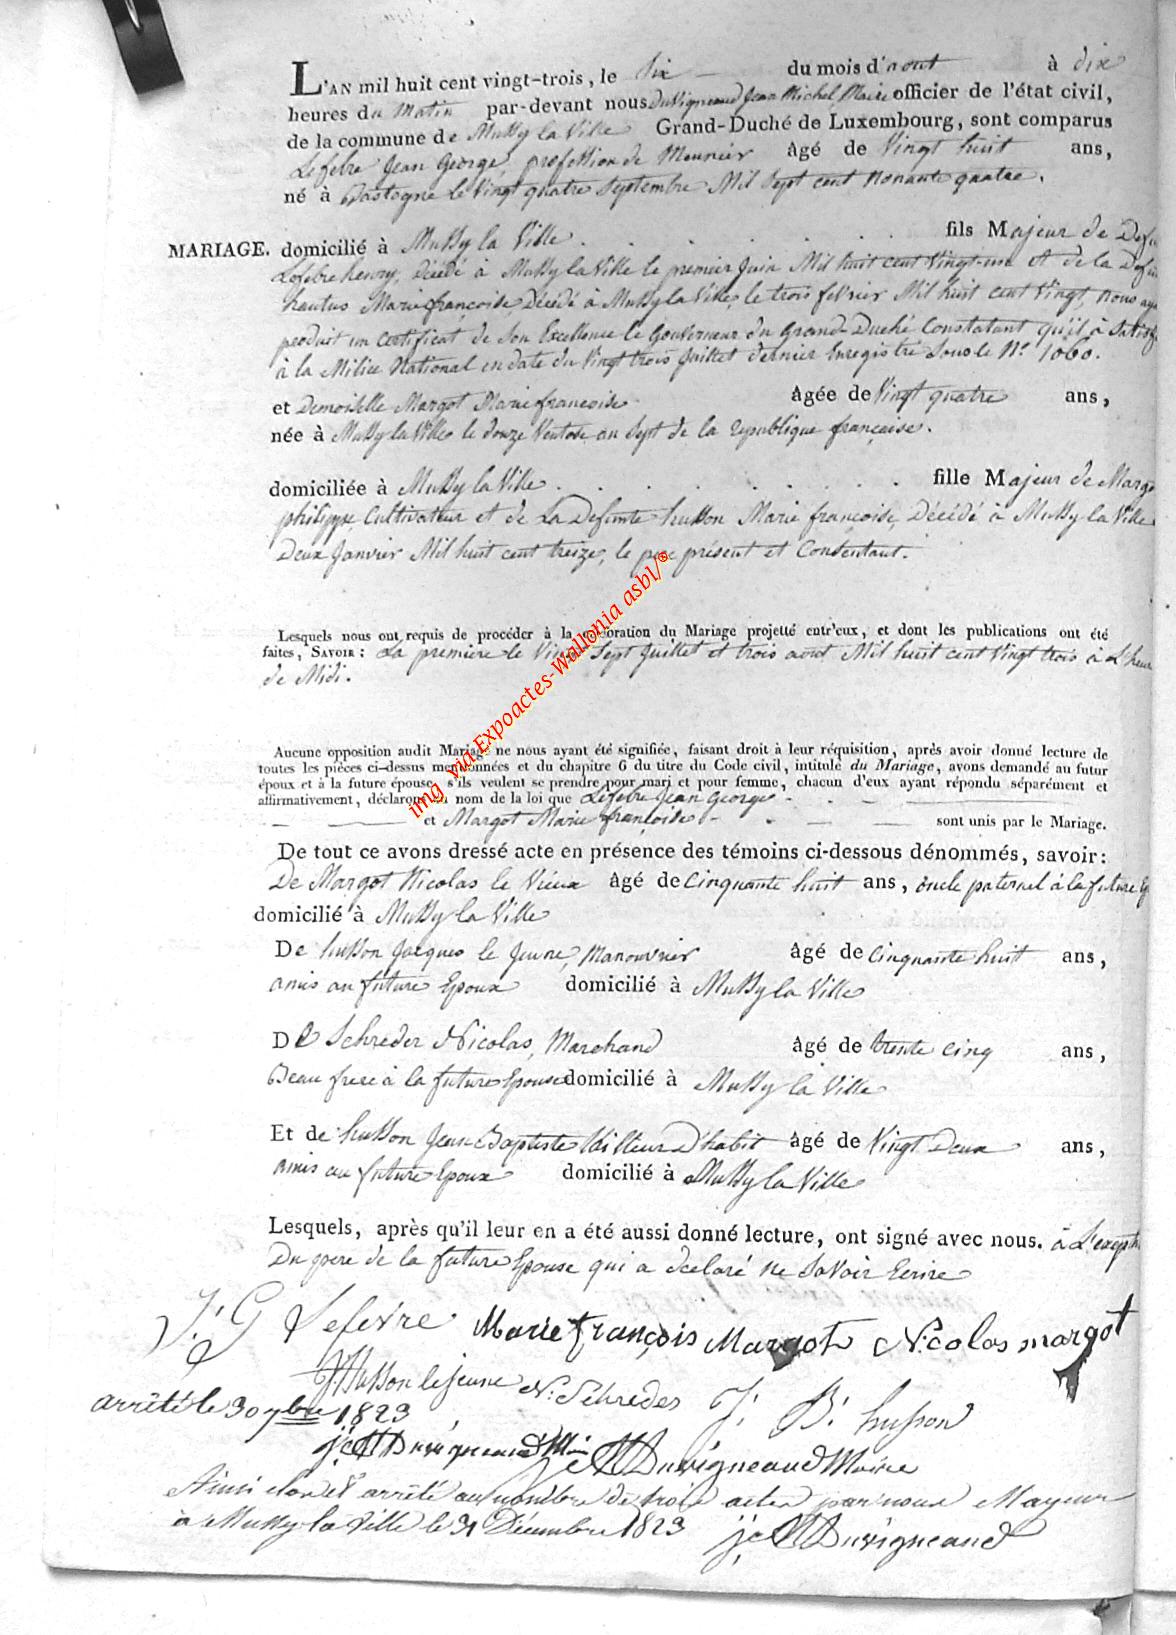 L'AN mil huit cent vingt-trois, le Six du mois d'aout à dix
heures du Matin par-devant nous Duvigneaud Jean Michel Maire officier de l'état civil,
de la commune de Mussy la Ville Grand-Duché de Luxembourg, sont comparus
Lefebre Jean George, profession de Meunier âgé de Vingt huit ans,
né à Bastogne le Vingt quatre Septembre Mil Sept cent Nonante quatre.
MARIAGE. domicilié à Mussy la Ville . . . . . . fils Majeur de Defu
Lefebre henry, Décédé à Mussy la Ville le premier Juin Mil huit cent Vingt-un Et de la Defun
hautus Marie françoise, Décédé à Mussy la Ville, le trois fevrier Mil huit cent Vingt, Nous aya
produit un certificat de Son Excellence le Gouverneur du Grand-Duché Constatant qu'il à Satisf
à la Milice National en date du Vingt trois Juillet dernier Enregistré Sous le N.° 1060.
et Demoiselle Margot Marie francoise âgée de Vingt quatre ans,
née à Mussy la Ville le douze Ventose an Sept de la republique française.
domiciliée à Mussy la Ville . . . . . . . . fille Majeur de Margo
philippe Cultivateur et de La Defunte husson Marie françoise, Décédé à Mussy la Ville
Deux Janvier Mil huit cent treize, le pere présent et Consentant.
Lesquels nous ont requis de procéder à la célébration du Mariage projetté entr'eux, et dont les publications ont été
faites, SAVOIR : La première le Vingt Sept Juillet et trois aout Mil huit cent Vingt trois à L'heur
de Midi.
Aucune opposition audit Mariage ne nous ayant été signifiée, faisant droit à leur réquisition, après avoir donné lecture de
toutes les pièces ci-dessus mentionnées et du chapitre 6 du titre du Code civil, intitulé du Mariage, avons demandé au futur
époux et à la future épouse, s'ils veulent se prendre pour mari et pour femme, chacun d'eux ayant répondu séparément et
affirmativement, déclarons au nom de la loi que Lefebre Jean George
et Margot Marie françoise sont unis par le Mariage.
De tout ce avons dressé acte en présence des témoins ci-dessous dénommés, savoir:
De Margot Nicolas le Vieux âgé de Cinquante huit ans, oncle paternel à la future Ep
domicilié à Mussy la Ville
De husson Jacques le Jeune, Manouvrier âgé de Cinquante huit ans,
amis au future Epoux domicilié à Mussy la Ville
De Schreder Nicolas, Marchand âgé de trente cinq ans,
Beau frere à la future Epouse domicilié à Mussy la Ville
Et de husson Jean Baptiste tailleur D'habit âgé de Vingt Deux ans,
amis au future Epoux domicilié à Mussy la Ville
Lesquels, après qu'il leur en a été aussi donné lecture, ont signé avec nous. à L'except
Du pere de la future Epouse qui a declaré ne Savoir Ecrire
J: G Lefevre Marie françois Margot Nicolas margot
J Husson le jeune N: Schredes J: B: husson
arrêté le 30 7bre 1823
JM Duvigneaud JM Duvigneaud Maire
Ainsi clos et arrêté au nombre de trois actes par nous Mayeur
à Mussy la Ville le 31 Décembre 1823 JM Duvigneaud
img via Expoactes-Wallonia asbl/®